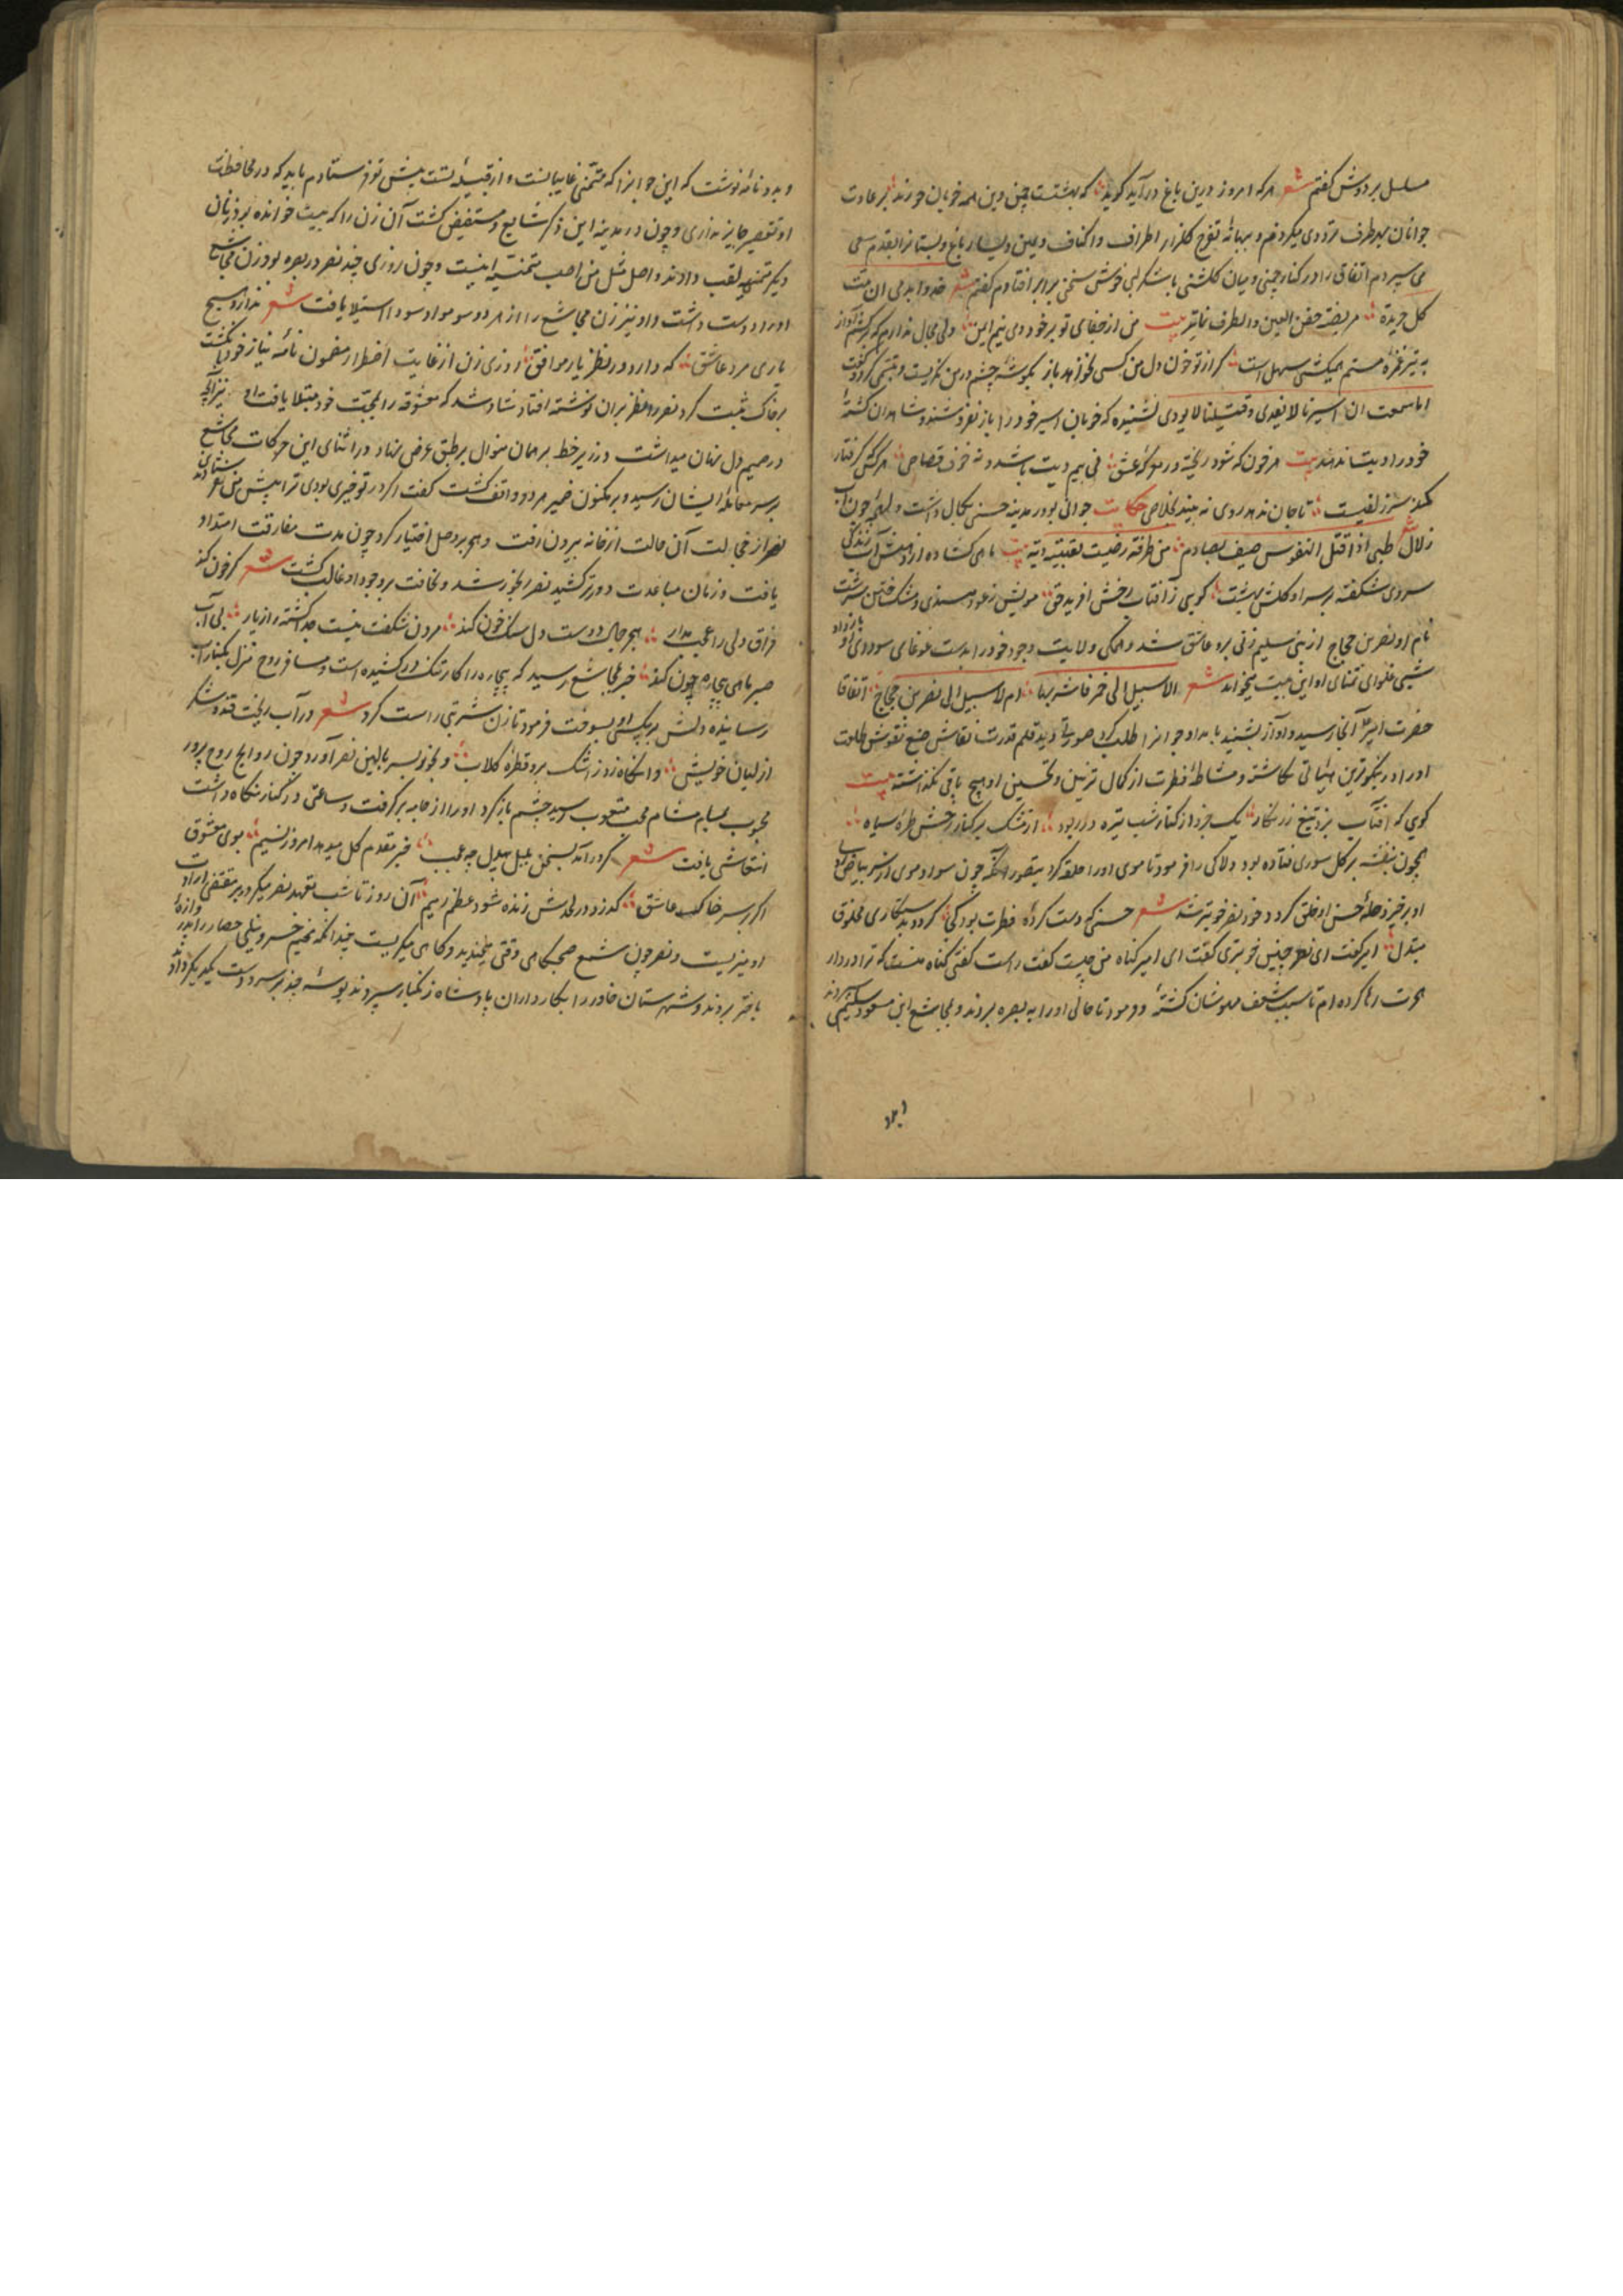 مسلسل بر دوش کفتم شعر هرکه امروز درین باغ درآید کوید که بهشتست چنین وین همه خوبان حورند بر عادت
جوانان بهر طرف ترددی میکردم و ببهانه تفرج کلزار اطراف و اکناف و یمین و یسار باغ و بستانرا بقدم سعی
می سپردم اتفاق را در کنار چمنی و میان کلشنی با شکر لبی خوش سخنی برابر افتادم کفتم شعر
کل جریدة مریضة جفن العین والطرف فاتر بیت من از جفای تو بر خود دی نیم این ولی مجال ندارم که برکشم آواز
به تیر غمزه مستم همیکشی سهل است کر از تو خون دل من کسی نخواهد باز بکوشه چشم در من نکریست و تبسمی کرد و کفت
اما سمعت ان اسیرنا لا یفدی وقتیلنا لا یودی نشنیده که خوبان اسیر خود را باز نفروشند و شاهدان کشته
خود را دیت ندهند بیت هر خون که شود ریخته در معرکه عشق نی بیم دیت باشد و نه خوف قصاص هرکس که کرفتار
کمند سر زلفیست تا جان ندهد روی نه بیند بخلاص حکایت جوانی بود در مدینه حسنی بکمال داشت
زلال شعر
سروی شکفته بر سر او کلشن بهشت کویی ز آفتاب رخش آفرید حق مویش ز عود هندی و مشک ختن سرشت
نام او نصر بن حجاج از بنی سلیم زنی برو عاشق شد و همکی ولایت وجود خود را بدست غوغای سودای او باز داد
شبی در غلوای تمنای او این بیت میخواند شعر الا سبیل الی خمر فاشربها ام لا سبیل الی نصر بن حجاج اتفاقا
حضرت امیر آنجا رسید و آواز بشنید بامداد جوانرا طلب کرد صورتی دید قلم قدرت نقاش صنع نقوش طلعت
او را در نیکوترین هیئاتی نکاشته و مشاطه فطرت از کمال تزیین و تحسین او هیچ باقی نکذاشته بیت
کویی که آفتاب بزد تیغ زرنکار یک جزو از کنار شب تیره در ربود از مشک بر کنار رخش طره سیاه
همچون بنفشه بر کل سوری فتاده بود دلاکی را فرمود تا موی او را حلقه کرد بتصور آنکه چون سواد موی از سر بیاض
او برخیزد حلّه حسن او خلق کردد خود نصر خوبتر شد شعر حسنی که دست کرده فطرت بود کی کردد بدستکاری مخلوق
مبتدل امیر کفت ای نصر چنین خوبتری کفت ای امیر کناه من چیست کفت راست کفتی کناه منست که ترا در دار
هجرت رها کرده ام تا سبب شعف مدهوشان کشته و فرمود تا حالی او را به بصره بردند و بمجاشع ابن مسعود سلیمی سپردند
و بدو نامه نوشت که این جوانرا که متمنی غانیانست و از قبیله تست پیش تو فرستادم باید که در محافظت
او تقصیر جایز نداری و چون در مدینه این ذکر شایع و مستفیض کشت آن زن را که بیت خوانده بر زنان
دیکر متمنیه لقب دادند و اصل مثل من اصب متمنیه اینست و چون روزی چند نصر در بصره بود زن مجاشع
او را دوست داشت و او نیز زن مجاشع را از هر دو سو مواد سودا استیلا یافت شعر ندارد هیچ
یاری مرد عاشق که دارد در نظر یار موافق روزی زن از غایت اضطرار مضمون نامه نیاز خود بانکشت
بر خاک ثبت کرد نصر را نظر بران نوشته افتاد شاد شد که معشوقه را بمحبت خود مبتلا یافت او نیز آنچه
در صمیم دل نهان میداشت در زیر خط بر همان منوال بر طبق عرض نهاد در اثنای این حرکات مجاشع
بر سر معامله ایشان رسید و بر مکنون ضمیر هر دو واقف کشت کفت اکر در تو خیری بودی ترا پیش من نفرستادندی
نصر از خجالت آن حالت از خانه بیرون رفت و هجر بر وصل اختیار کرد چون مدت مفارقت امتداد
یافت و زمان مباعدت دورتر کشید نصر رنجور شد و نحافت بر وجود او غالب کشت شعر کر خون کند
فراق دلی را عجب مدار هجر جمال دوست دل سنک خون کند مردن شکفت نیست جدا کشته را ز یار بی آب
صبر ماهی بیچاره چون کند خبر بمجاشع رسید که بیچاره را کار تنک در کشیده است و مسافر روح منزل بکنار آب
رسانیده دلش بر بیکسی او بسوخت فرمود تا زن شربتی راست کرد شعر در آب ریخت قند و شکر
از لبان خویش وانکاه زد ز اشک برو قطره کلاب و بخود بسر بالین نصر آورد چون روایح روح پرور
محبوب بمشام محب متعوب رسید چشم باز کرد او را از جامه برکرفت و ساعتی در کنار نکاه داشت
انتعاشی یافت شعر کر درآمد بسخن بلبل بیدل چه عجب خبر مقدم کل میدهد امروز نسیم بوی معشوق
اکر بر سر خاک عاشق کذرد در لحدش زنده شود عظم رمیم آن روز تا شب تعهد نصر میکرد بر مقتضی ارادت
او میزیست و نصر چون شمع صبحکاهی وقتی میخندید و کاهی میکریست چندانکه خیم خسرو نیلی حصار را
باختر بردند و شهرستان خاور را بکارداران پادشاه زنکبار سپردند بوسه چند بر سر و دست یکدیکر دادند